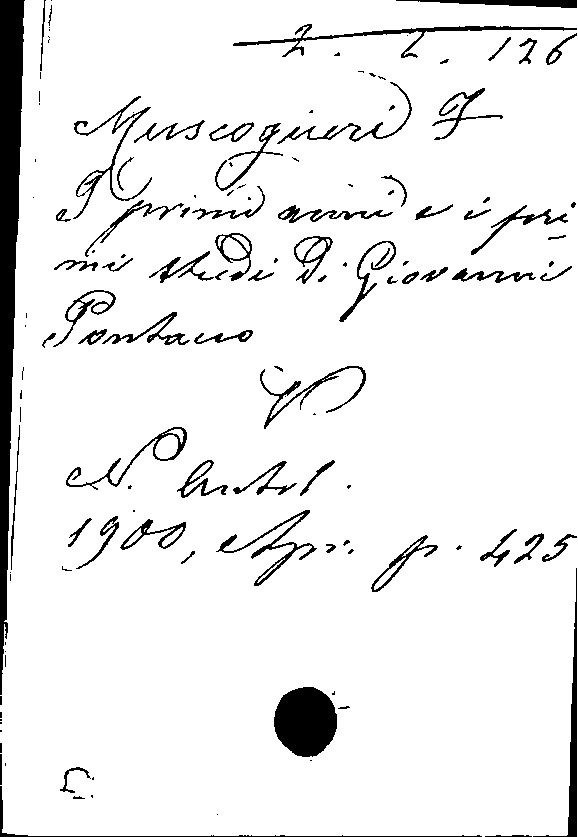 2. 2. 126
Muscogiuri F
I primi anni e i pri-
mi studi di Giovanni
Pontano
V.
N. Antol.
1900, Apr. p. 425